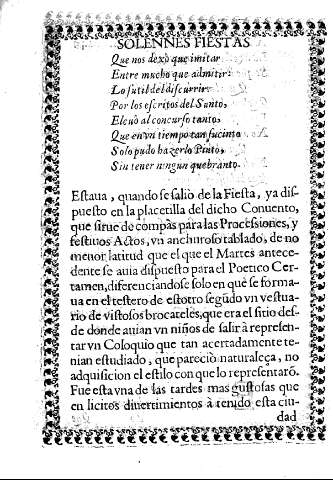 SOLENNES FIESTAS
Que nos dexò que imitar
Entre mucho que admitir:
Lo sutil del discurrir,
Por los escritos del Santo,
Eleuò al concurso tanto,
Que en vn tiempo tan sucinto
Solo pudo hazerlo Pinto,
Sin tener ningun quebranto.
Estaua, quando se saliò de la Fiesta, ya dis-
puesto en la placetilla del dicho Conuento,
que sirue de compàs para las Processiones, y
festiuos Actos, vn anchuroso tablado, de no
menor latitud que el que el Martes antece-
dente se auia dispuesto para el Poetico Cer-
tamen, diferenciandose solo en què se forma-
ua en el testero de estotro segũdo vn vestua-
rio de vistosos brocateles, que era el sitio des-
de donde auian vn niños de salir à represen-
tar vn Coloquio que tan acertadamente te-
nian estudiado, que pareciò naturaleça, no
adquisicion el estilo con que lo representarõ.
Fue esta vna de las tardes mas gustosas que
en licitos diuertimientos à tenido esta ciu-
dad